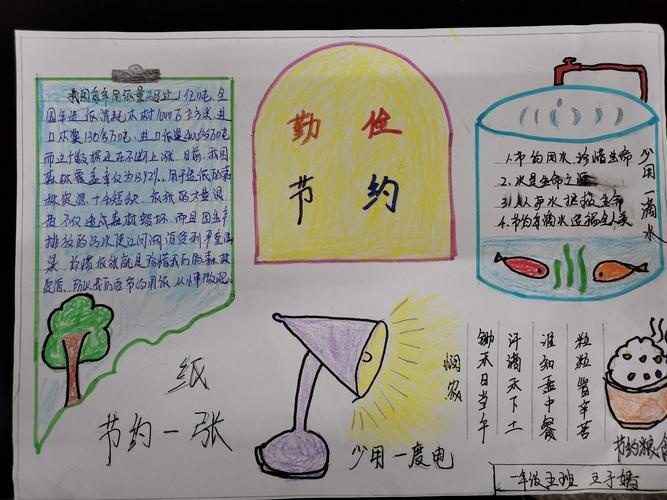 我国每年用纸量超过1亿吨，全
国年造纸消耗木材1000万立方米，进
口木浆130多万吨，进口纸浆400多万吨
而这个数据还在不断上涨．目前，我国
森林覆盖率仅为13.92%．用于造纸的森
林资源十分短缺．纸张的大量浪
费不仅造成森林毁坏．而且因生产
排放的污水使江河湖泊受到严重污
染．珍惜纸张就是珍惜我们的森林
资源．所以我们应节约用纸从小事做起．
纸
节约一张
勤俭
节约
少用一度电
1.节约用水，珍惜生命
2.水是生命之源
3.人人护水拯救生命
4.节约每滴水造福全人类
少用一滴水
悯农
锄禾日当午
汗滴禾下土
谁知盘中餐
粒粒皆辛苦
节约粮食
一年级五班